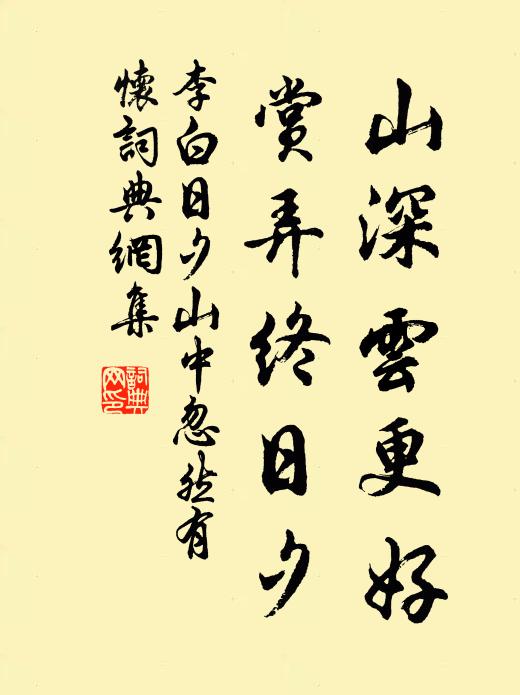 山深雲更好
賞弄終日夕
李白日夕山中忽然有
懷詞典網集
詞典
网印